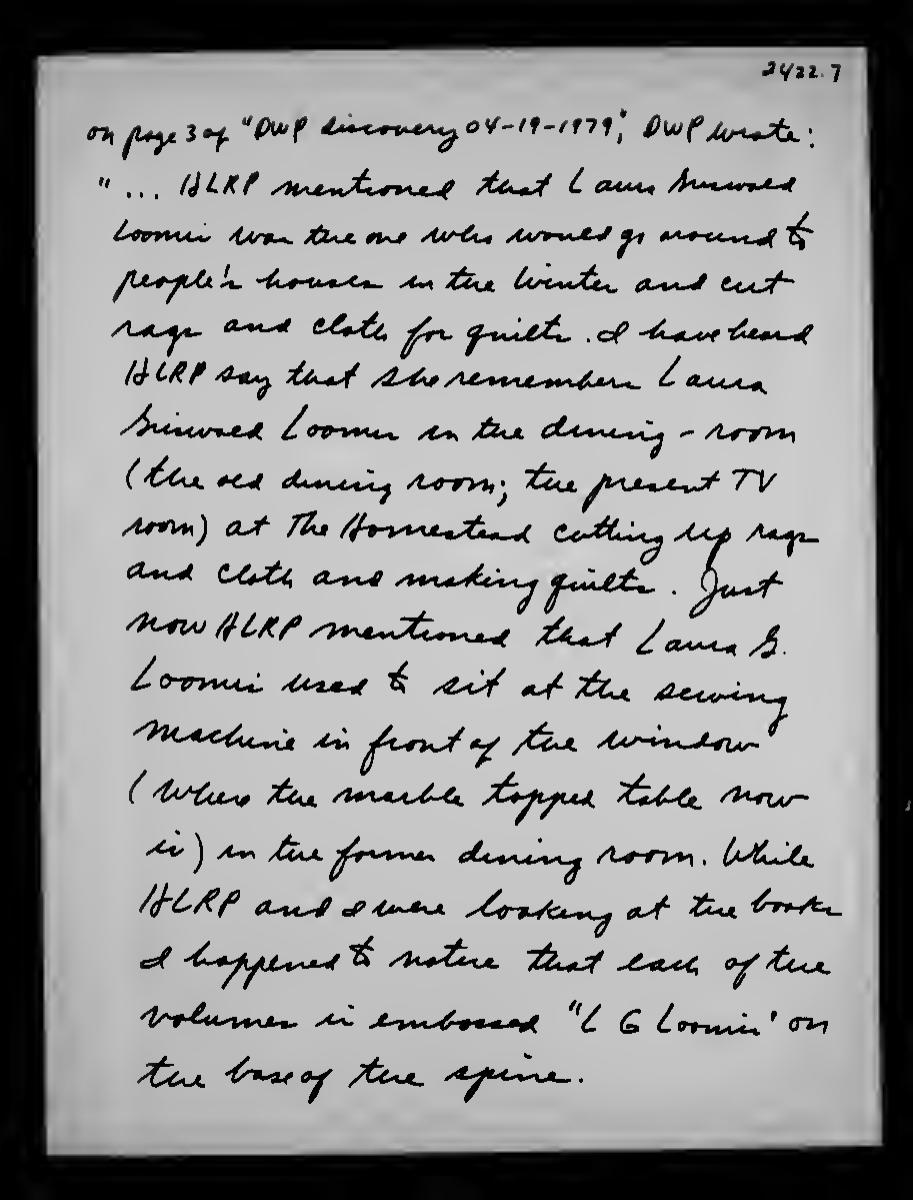 2422.7
on page 3 of "DWP discovery 04-19-1979", DWP wrote:
"... HLRP mentioned that Laura Griswold
Loomis was the one who would go around to
people's houses in the winter and cut
rags and cloth for quilts. I have heard
HLRP say that she remembers Laura
Griswold Loomis in the dining-room
(the old dining room; the present TV
room) at The Homestead cutting up rags
and cloth and making quilts. Just
now HLRP mentioned that Laura G.
Loomis used to sit at the sewing
machine in front of the window
(where the marble topped table now
is) in the former dining room. While
HLRP and I were looking at the books
I happened to notice that each of the
volumes is embossed "L G Loomis' on
the base of the spine.